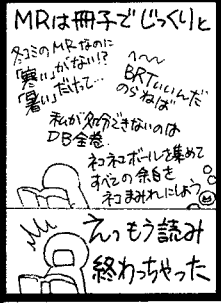 MRは冊子でじっくりと
冬コミのMRなのに
「寒い」がない!?
「暑い」だけって…
へ〜〜
BRTいいんだ
のらねば
私が処分できないのは
DB全巻
ネコネコボールを集めて
すべての余白を
ネコまみれにしよう
えっもう読み
終わっちゃった